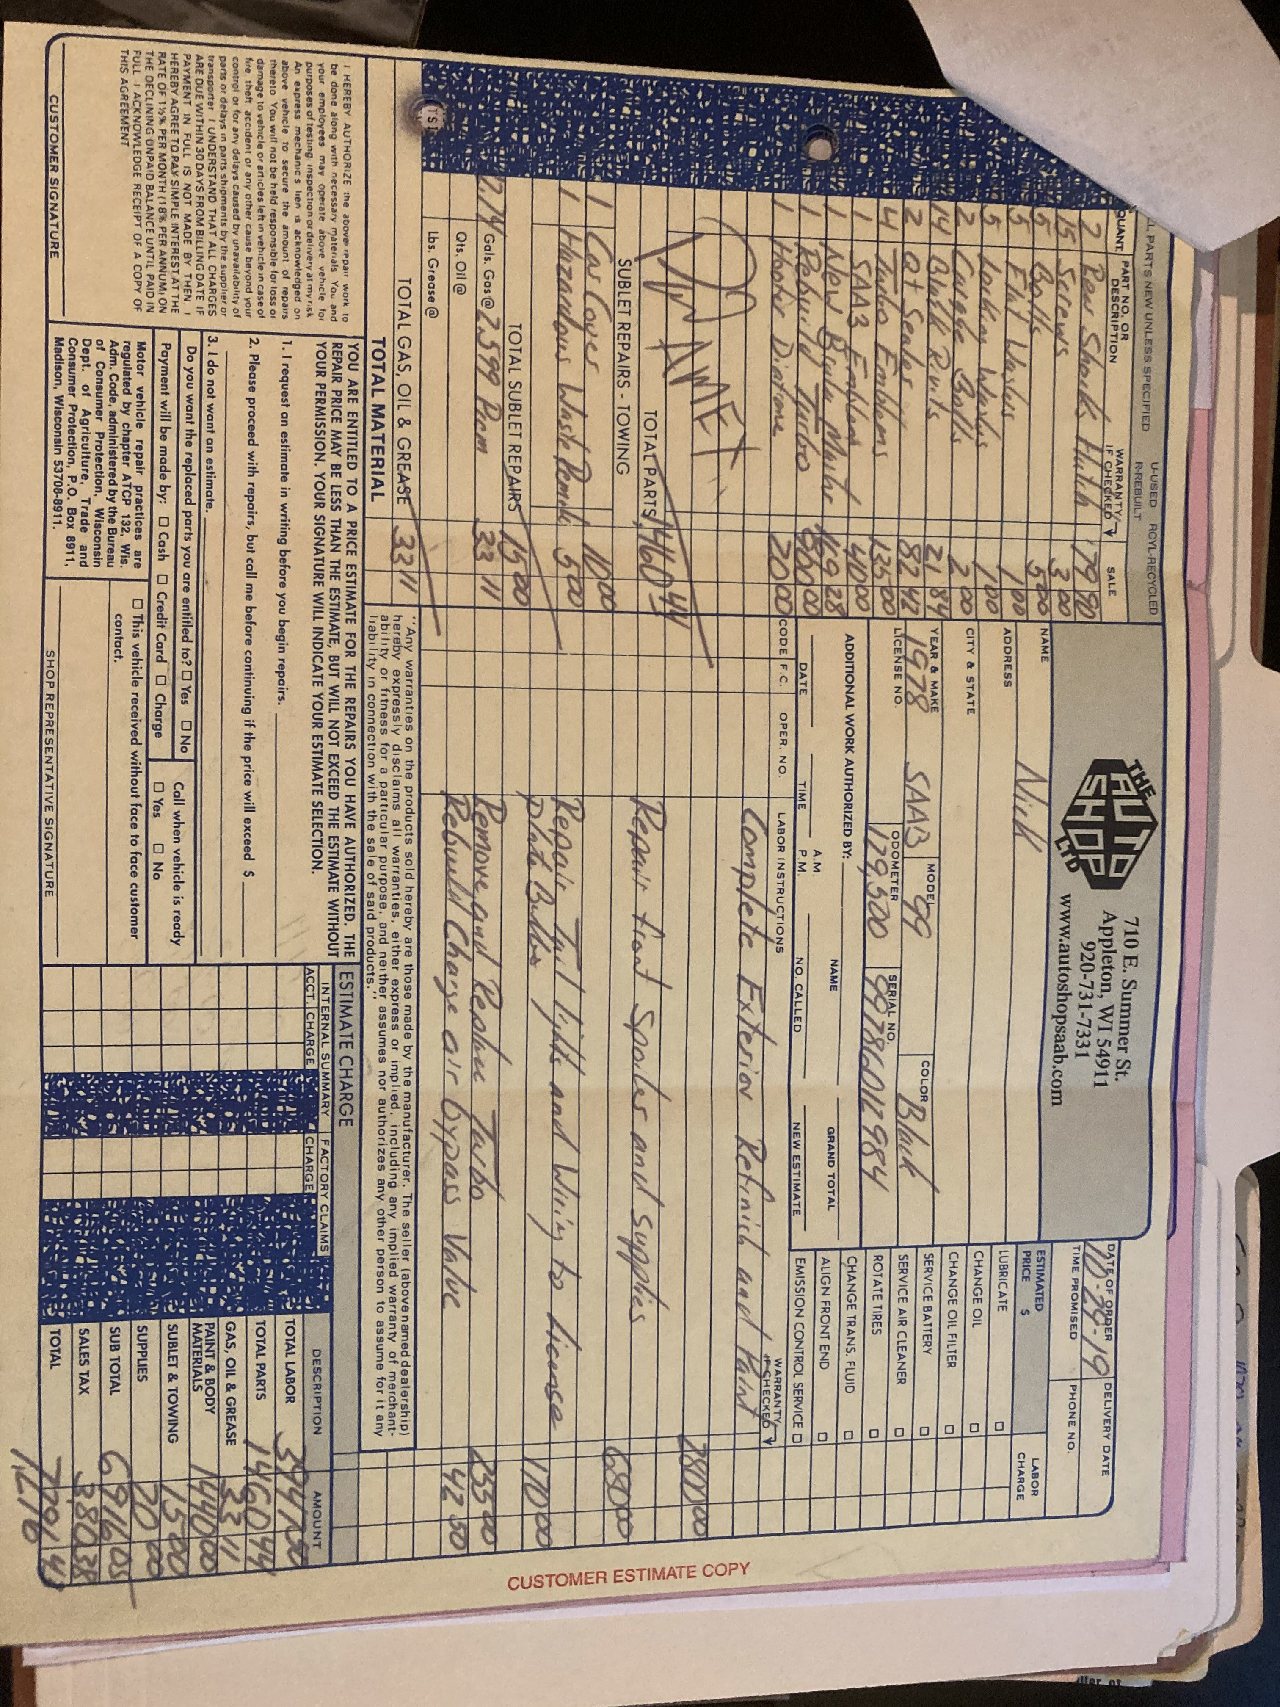 ALL PARTS NEW UNLESS SPECIFIED U-USED RCYL-RECYCLED
R-REBUILT
QUANT. PART NO. OR DESCRIPTION WARRANTY IF CHECKED SALE
2 Rear Shock Hatch 179 90
15 Screws 3 00
5 Bolts 5 00
5 Flat Washers 1 00
5 Locking Washers 1 00
2 Bolts 2 00
14 Black Rivets 21 84
2 Qt Sealer 82 42
4 Turbo Emblems 135 00
1 SAAB Emblem 40 00
1 New 169 28
1 Rebuild Turbo 800 00
1 20 00
TOTAL PARTS 1460 44
SUBLET REPAIRS - TOWING
1 Car Cover 10 00
1 Hazardous Waste 5 00
TOTAL SUBLET REPAIRS 15 00
Gals. Gas @ 2.599 Prem 33 11
Qts. Oil @
Lbs. Grease @
TOTAL GAS, OIL & GREASE 33 11
TOTAL MATERIAL
THE AUTO SHOP LTD
710 E. Summer St.
Appleton, WI 54911
920-731-7331
www.autoshopsaab.com
NAME Nick
ADDRESS
CITY & STATE
YEAR & MAKE 1978 SAAB MODEL 99 COLOR Black
LICENSE NO. ODOMETER 179,500 SERIAL NO. 99786012984
ADDITIONAL WORK AUTHORIZED BY: NAME GRAND TOTAL
DATE TIME A.M. P.M. NO. CALLED NEW ESTIMATE
DATE OF ORDER 10-29-19 DELIVERY DATE
TIME PROMISED PHONE NO.
ESTIMATED PRICE $ LABOR CHARGE
LUBRICATE
CHANGE OIL
CHANGE OIL FILTER
SERVICE BATTERY
SERVICE AIR CLEANER
ROTATE TIRES
CHANGE TRANS. FLUID
ALIGN FRONT END
EMISSION CONTROL SERVICE
CODE F.C. OPER. NO. LABOR INSTRUCTIONS WARRANTY IF CHECKED
Complete Exterior Refinish and Paint
2800 00
Repair front Spoiler and Supplies
680 00
Repair Tail lights and Wiring to license
plate Bulbs 170 00
Remove and Replace Turbo 255 00
Rebuild Charge air bypass Valve 42 50
"Any warranties on the products sold hereby are those made by the manufacturer. The seller (above named dealership)
hereby expressly disclaims all warranties, either express or implied, including any implied warranty of merchant-
ability or fitness for a particular purpose, and neither assumes nor authorizes any other person to assume for it any
liability in connection with the sale of said products."
I HEREBY AUTHORIZE the above repair work to
be done along with necessary materials. You and
your employees may operate above vehicle for
purposes of testing, inspection or delivery at my risk.
An express mechanic's lien is acknowledged on
above vehicle to secure the amount of repairs
thereto. You will not be held responsible for loss or
damage to vehicle or articles left in vehicle in case of
fire, theft, accident or any other cause beyond your
control or for any delays caused by unavailability of
parts or delays in parts shipments by the supplier or
transporter. I UNDERSTAND THAT ALL CHARGES
ARE DUE WITHIN 30 DAYS FROM BILLING DATE. IF
PAYMENT IN FULL IS NOT MADE BY THEN, I
HEREBY AGREE TO PAY SIMPLE INTEREST AT THE
RATE OF 1½% PER MONTH (18% PER ANNUM) ON
THE DECLINING UNPAID BALANCE UNTIL PAID IN
FULL. I ACKNOWLEDGE RECEIPT OF A COPY OF
THIS AGREEMENT
CUSTOMER SIGNATURE
YOU ARE ENTITLED TO A PRICE ESTIMATE FOR THE REPAIRS YOU HAVE AUTHORIZED. THE
REPAIR PRICE MAY BE LESS THAN THE ESTIMATE, BUT WILL NOT EXCEED THE ESTIMATE WITHOUT
YOUR PERMISSION. YOUR SIGNATURE WILL INDICATE YOUR ESTIMATE SELECTION.
1. I request an estimate in writing before you begin repairs.
2. Please proceed with repairs, but call me before continuing if the price will exceed $
3. I do not want an estimate.
Do you want the replaced parts you are entitled to? Yes No
Payment will be made by: Cash Credit Card Charge
Call when vehicle is ready
Yes No
Motor vehicle repair practices are
regulated by chapter ATCP 132, Wis.
Adm. Code, administered by the Bureau
of Consumer Protection, Wisconsin
Dept. of Agriculture, Trade and
Consumer Protection, P.O. Box 8911,
Madison, Wisconsin 53708-8911.
This vehicle received without face to face customer
contact.
SHOP REPRESENTATIVE SIGNATURE
ESTIMATE CHARGE
INTERNAL SUMMARY FACTORY CLAIMS DESCRIPTION AMOUNT
ACCT. CHARGE CHARGE
TOTAL LABOR 3947 50
TOTAL PARTS 1460 44
GAS, OIL & GREASE 33 11
PAINT & BODY MATERIALS 1440 00
SUBLET & TOWING 15 00
SUPPLIES 20 00
SUB TOTAL 6916 05
SALES TAX 380 38
TOTAL 7,296 43
CUSTOMER ESTIMATE COPY